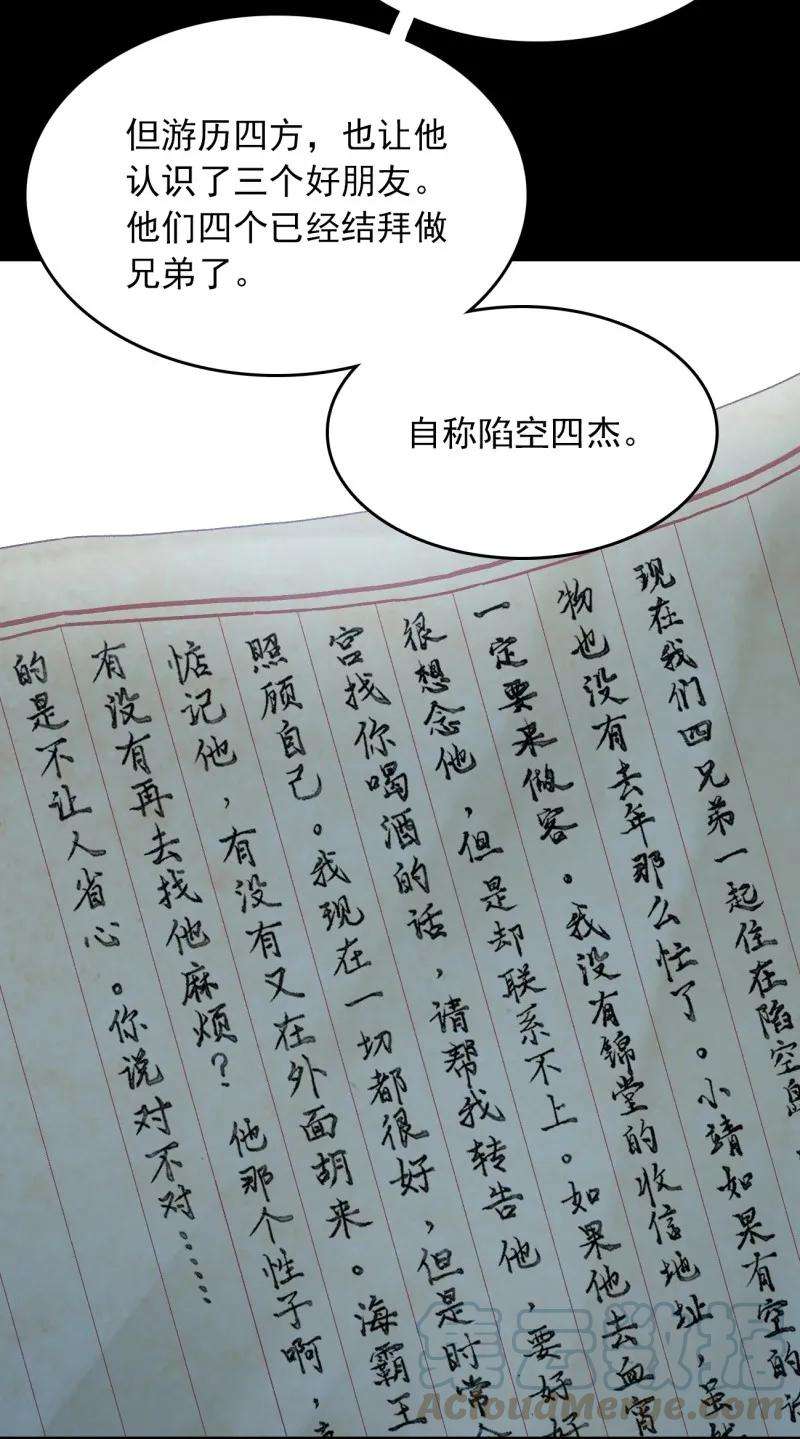 但游历四方，也让他
认识了三个好朋友。
他们四个已经结拜做
兄弟了。
自称陷空四杰。
现在我们四兄弟一起住在陷空岛
物也没有去年那么忙了。小靖如果有空的话
一定要来做客。我没有锦堂的收信地址，虽然
很想念他，但是却联系不上。如果他去血宵
宫找你喝酒的话，请帮我转告他，要好好
照顾自己。我现在一切都很好，但是时常
惦记他，有没有又在外面胡来。海霸王
有没有再去找他麻烦？他那个性子啊，
的是不让人省心。你说对不对……
集云数据
AcloudMerge.com